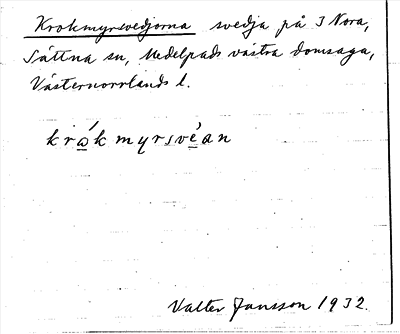 Krokmyrsvedjorna svedja på 3 Nora,
Sättna sn, Medelpads västra domsaga,
Västernorrlands l.
krɷ́kmyrsvèan
Valter Jansson 1932.